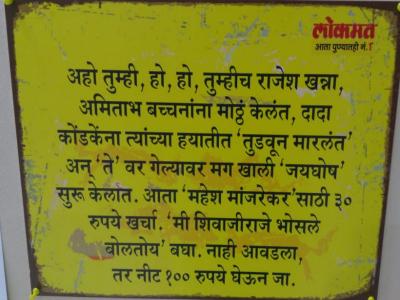 लोकमत
आता पुण्यातही नं. १
अहो तुम्ही, हो, हो, तुम्हीच राजेश खन्ना,
अमिताभ बच्चनांना मोठ्ठं केलंत, दादा
कोंडकेंना त्यांच्या हयातीत 'तुडवून मारलंत'
अन् 'ते' वर गेल्यावर मग खाली 'जयघोष'
सुरू केलात. आता 'महेश मांजरेकर'साठी ३०
रुपये खर्चा. 'मी शिवाजीराजे भोसले
बोलतोय' बघा. नाही आवडला,
तर नीट १०० रुपये घेऊन जा.